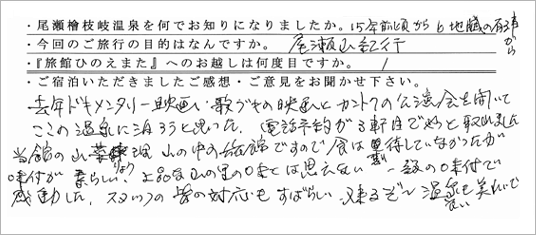 ・尾瀬檜枝岐温泉を何でお知りになりましたか。15年前頃から 6地蔵の有る から
・今回のご旅行の目的はなんですか。 尾瀬山紀行
・『旅館ひのえまた』へのお越しは何度目ですか。 1
・ご宿泊いただきましたご感想・ご意見をお聞かせ下さい。
去年ドキメンタリー映画・歌ブキの映画と の公演会を聞いて
ここの温泉に泊ろうと思いった、電話予約が3軒目でやっと取れました
当館の山菜料理 山の中の旅館ですので食は期待していなかったが
味付が素らしい、上品な山の里の味とは思えない 一級の味付で
感動した、スタッフの皆の対応もすばらしい、又来るぞ〜 温泉も美人で
良い